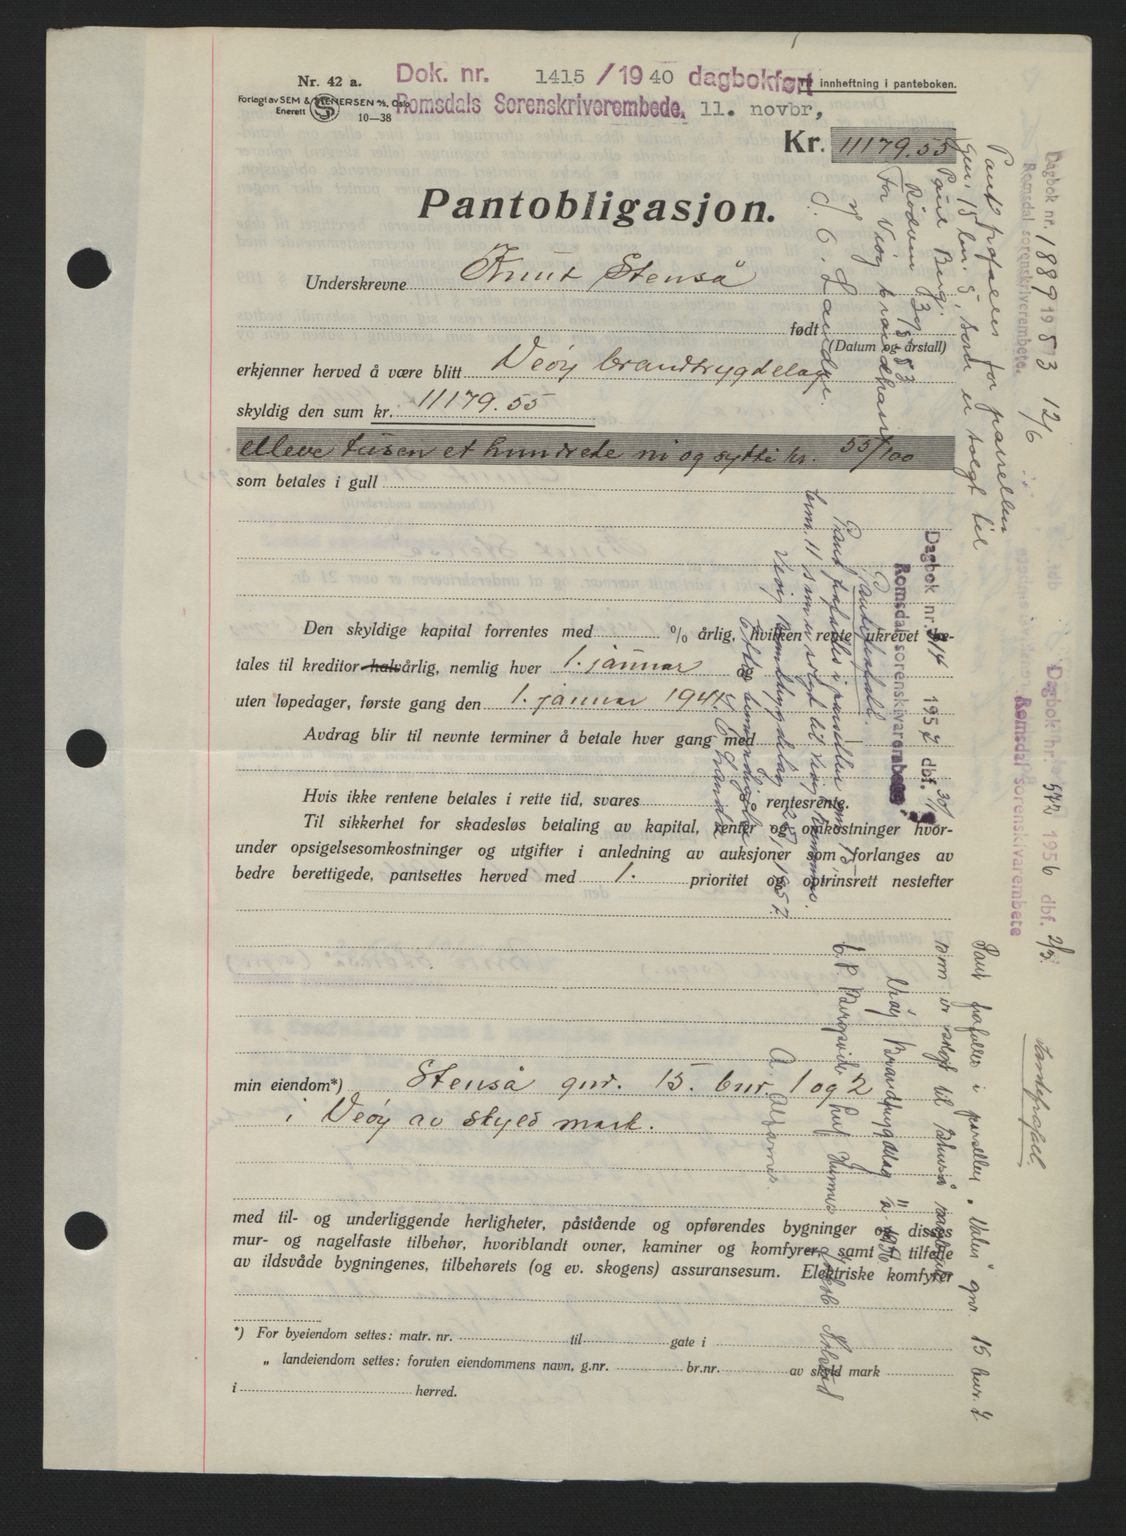 Nr. 42 a.
Forlagt av SEM & STENERSEN A/S, Oslo
Enerett
10—38
Dok. nr. 1415 / 19 40 dagbokført
innheftning i panteboken.
Romsdals Sorenskriverembede, 11. novbr,
Kr. 11179.55
Pantobligasjon.
Underskrevne Knut Stenså
født
(Datum og årstall)
erkjenner herved å være blitt Veøy brandtrygdelag
skyldig den sum kr. 11179.55
elleve tusen et hundrede ni og sytti kr. 55/100
som betales i gull
Den skyldige kapital forrentes med % årlig, hvilken rente ukrevet be-
tales til kreditor halvårlig, nemlig hver 1. januar og
uten løpedager, første gang den 1. januar 1941.
Avdrag blir til nevnte terminer å betale hver gang med
Hvis ikke rentene betales i rette tid, svares rentesrente.
Til sikkerhet for skadesløs betaling av kapital, renter og omkostninger hvor-
under opsigelsesomkostninger og utgifter i anledning av auksjoner som forlanges av
bedre berettigede, pantsettes herved med 1. prioritet og optrinsrett nestefter
min eiendom*) Stenså gnr. 15. bnr. 1 og 2
i Veøy av skyld mark.
med til- og underliggende herligheter, påstående og opførendes bygninger og disses
mur- og nagelfaste tilbehør, hvoriblandt ovner, kaminer og komfyrer, samt i tilfelle
av ildsvåde bygningenes, tilbehørets (og ev. skogens) assuransesum. Elektriske komfyrer
*) For byeiendom settes: matr. nr. til gate i
„ landeiendom settes: foruten eiendommens navn, g.nr. br.nr. av skyld mark
i herred.
Dagbok nr. 1889 19 53 12/6
Romsdal sorenskriverembete.
Pant frafalles for parsellen
gnr. 15 bnr. 5, som er solgt til
Paul Berg.
Rødven 3/8-53
For Veøy brandtrygdelag
J. O. Landre.
Dagbok nr. 414 1957 dbf. 30/
Romsdal sorenskrivarembete
Pantefrafall.
Pant frafalles i parsellen gnr. 15,
bnr. 11 som er solgt til Veøy kommune.
Veøy Brandtrygdelag 28/1 1957
Dagbok nr. 572 1956 dbf. 2/3.
Romsdal sorenskrivarembete
Pantefrafall.
Pant frafalles i parsellen "Valen" gnr. 15 bnr. 7
som er solgt til
Veøy Brandtrygdelag 1956